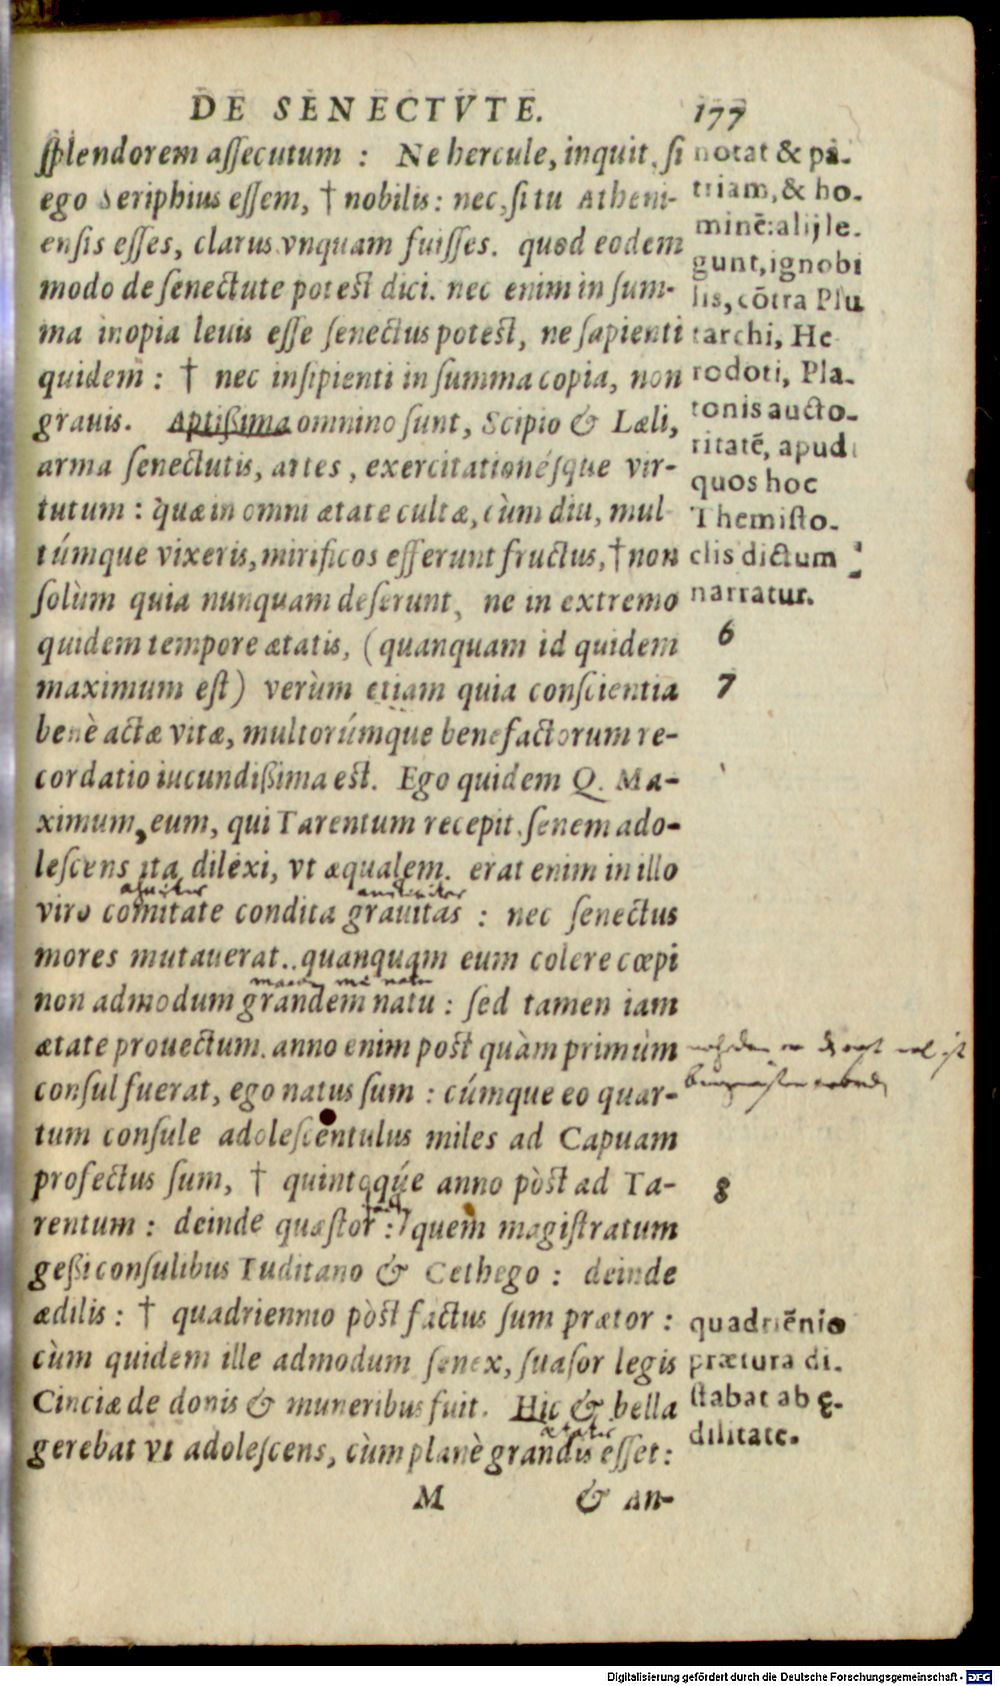 DE SENECTVTE. 177
splendorem assecutum : Ne hercule, inquit, si
ego Seriphius essem, † nobilis: nec, si tu Atheni-
ensis esses, clarus vnquam fuisses. quod eodem
modo de senectute potest dici. nec enim in sum-
ma inopia leuis esse senectus potest, ne sapienti
quidem : † nec insipienti in summa copia, non
grauis. Aptißima omnino sunt, Scipio & Læli,
arma senectutis, artes, exercitationésque vir-
tutum : quæ in omni ætate cultæ, cùm diu, mul
túmque vixeris, mirificos efferunt fructus, † non
solùm quia nunquam deserunt, ne in extremo
quidem tempore ætatis, (quanquam id quidem
maximum est) verùm etiam quia conscientia
benè actæ vitæ, multorúmque benefactorum re-
cordatio iucundißima est. Ego quidem Q. Ma-
ximum, eum, qui Tarentum recepit, senem ado-
lescens ita dilexi, vt æqualem. erat enim in illo
viro comitate condita grauitas : nec senectus
mores mutauerat. quanquam eum colere cœpi
non admodum grandem natu : sed tamen iam
ætate prouectum. anno enim post quàm primùm
consul fuerat, ego natus sum : cúmque eo quar-
tum consule adolescentulus miles ad Capuam
profectus sum, † quintoqúe anno pòst ad Ta-
rentum : deinde quæstor : quem magistratum
geßi consulibus Tuditano & Cethego : deinde
ædilis : † quadriennio pòst factus sum prætor :
cùm quidem ille admodum senex, suasor legis
Cinciæ de donis & muneribus fuit. Hic & bella
gerebat vt adolescens, cùm planè grandis esset :
M & An-
notat & pa-
triam, & ho-
minē: alij le-
gunt, ignobi
lis, cōtra Plu
tarchi, He
rodoti, Pla-
tonis aucto-
ritatē, apud
quos hoc
Themisto-
clis dictum
narratur.
6
7
8
quadriēnio
prætura di-
stabat ab ę-
dilitate.
Digitalisierung gefördert durch die Deutsche Forschungsgemeinschaft - DFG